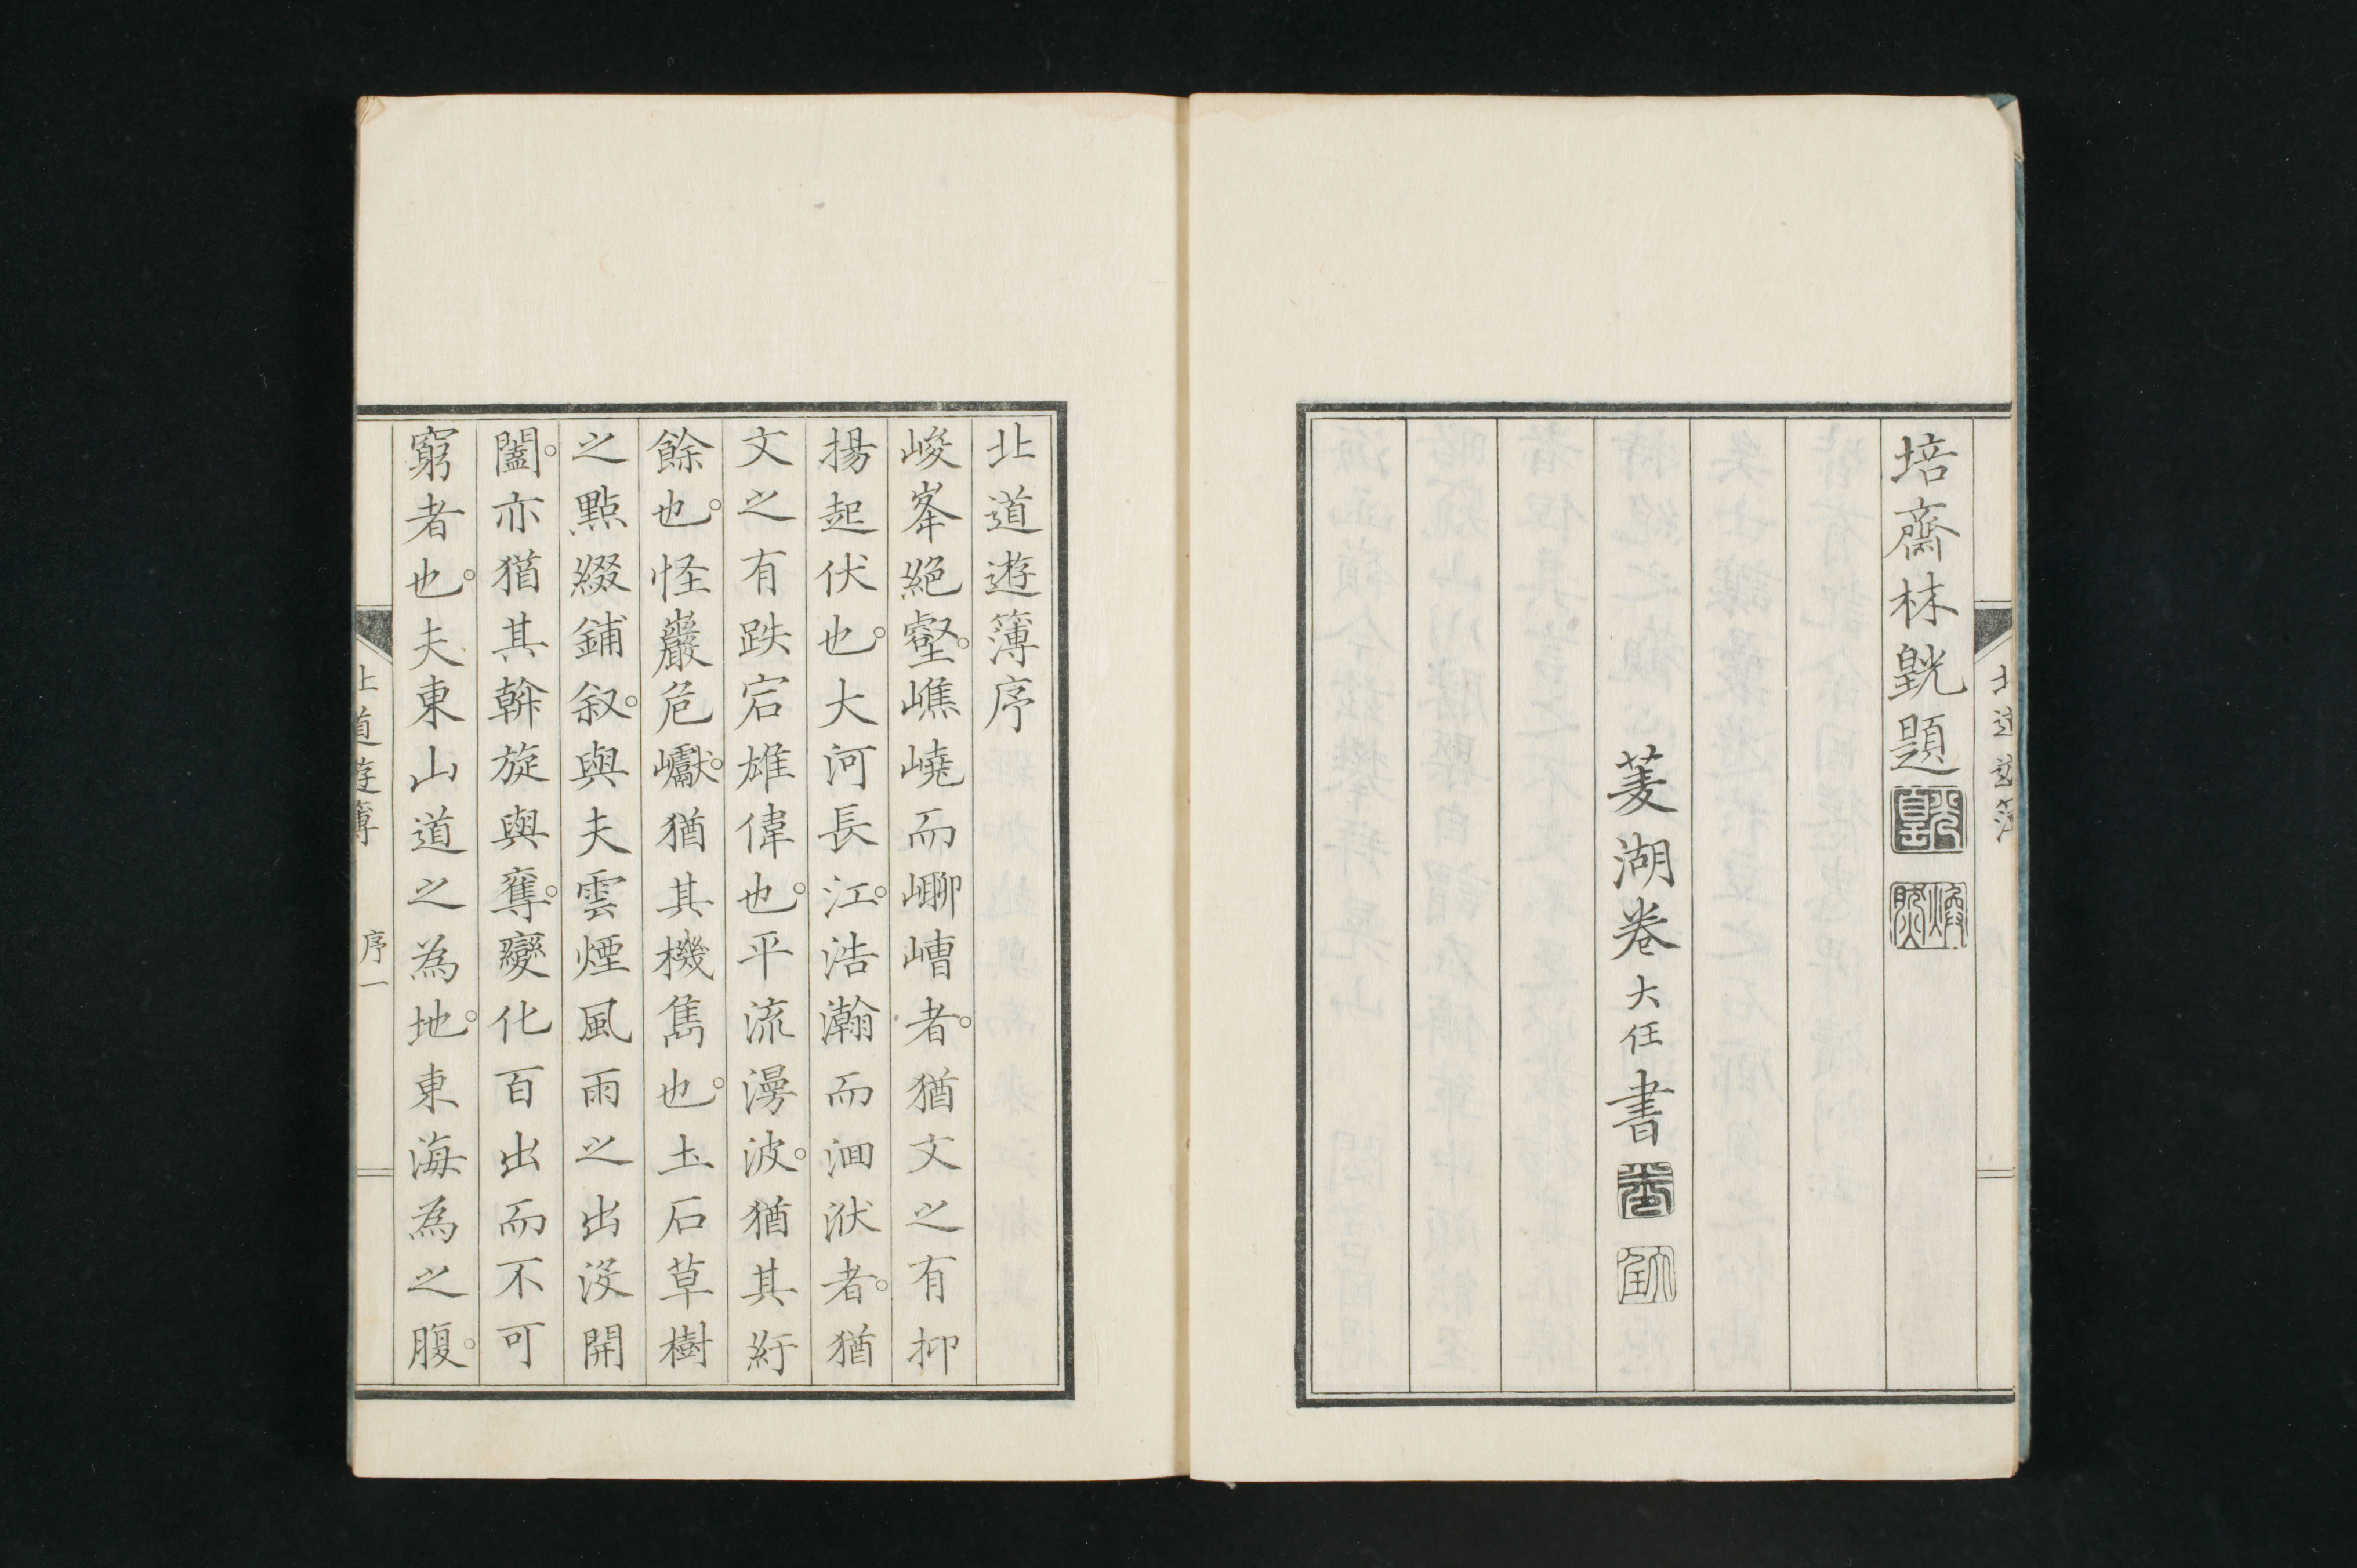 培齋林皝題
菱湖卷大任書
北道遊簿序
峻峯絕壑。嶕嶢而嵺嶆者。猶文之有抑
揚起伏也。大河長江。浩瀚而洄洑者。猶
文之有跌宕雄偉也。平流漫波。猶其紆
餘也。怪巖危巘。猶其機雋也。土石草樹
之點綴鋪叙。與夫雲煙風雨之出沒開
闔。亦猶其斡旋與奪。變化百出而不可
窮者也。夫東山道之為地。東海為之腹。
北道遊簿 序一